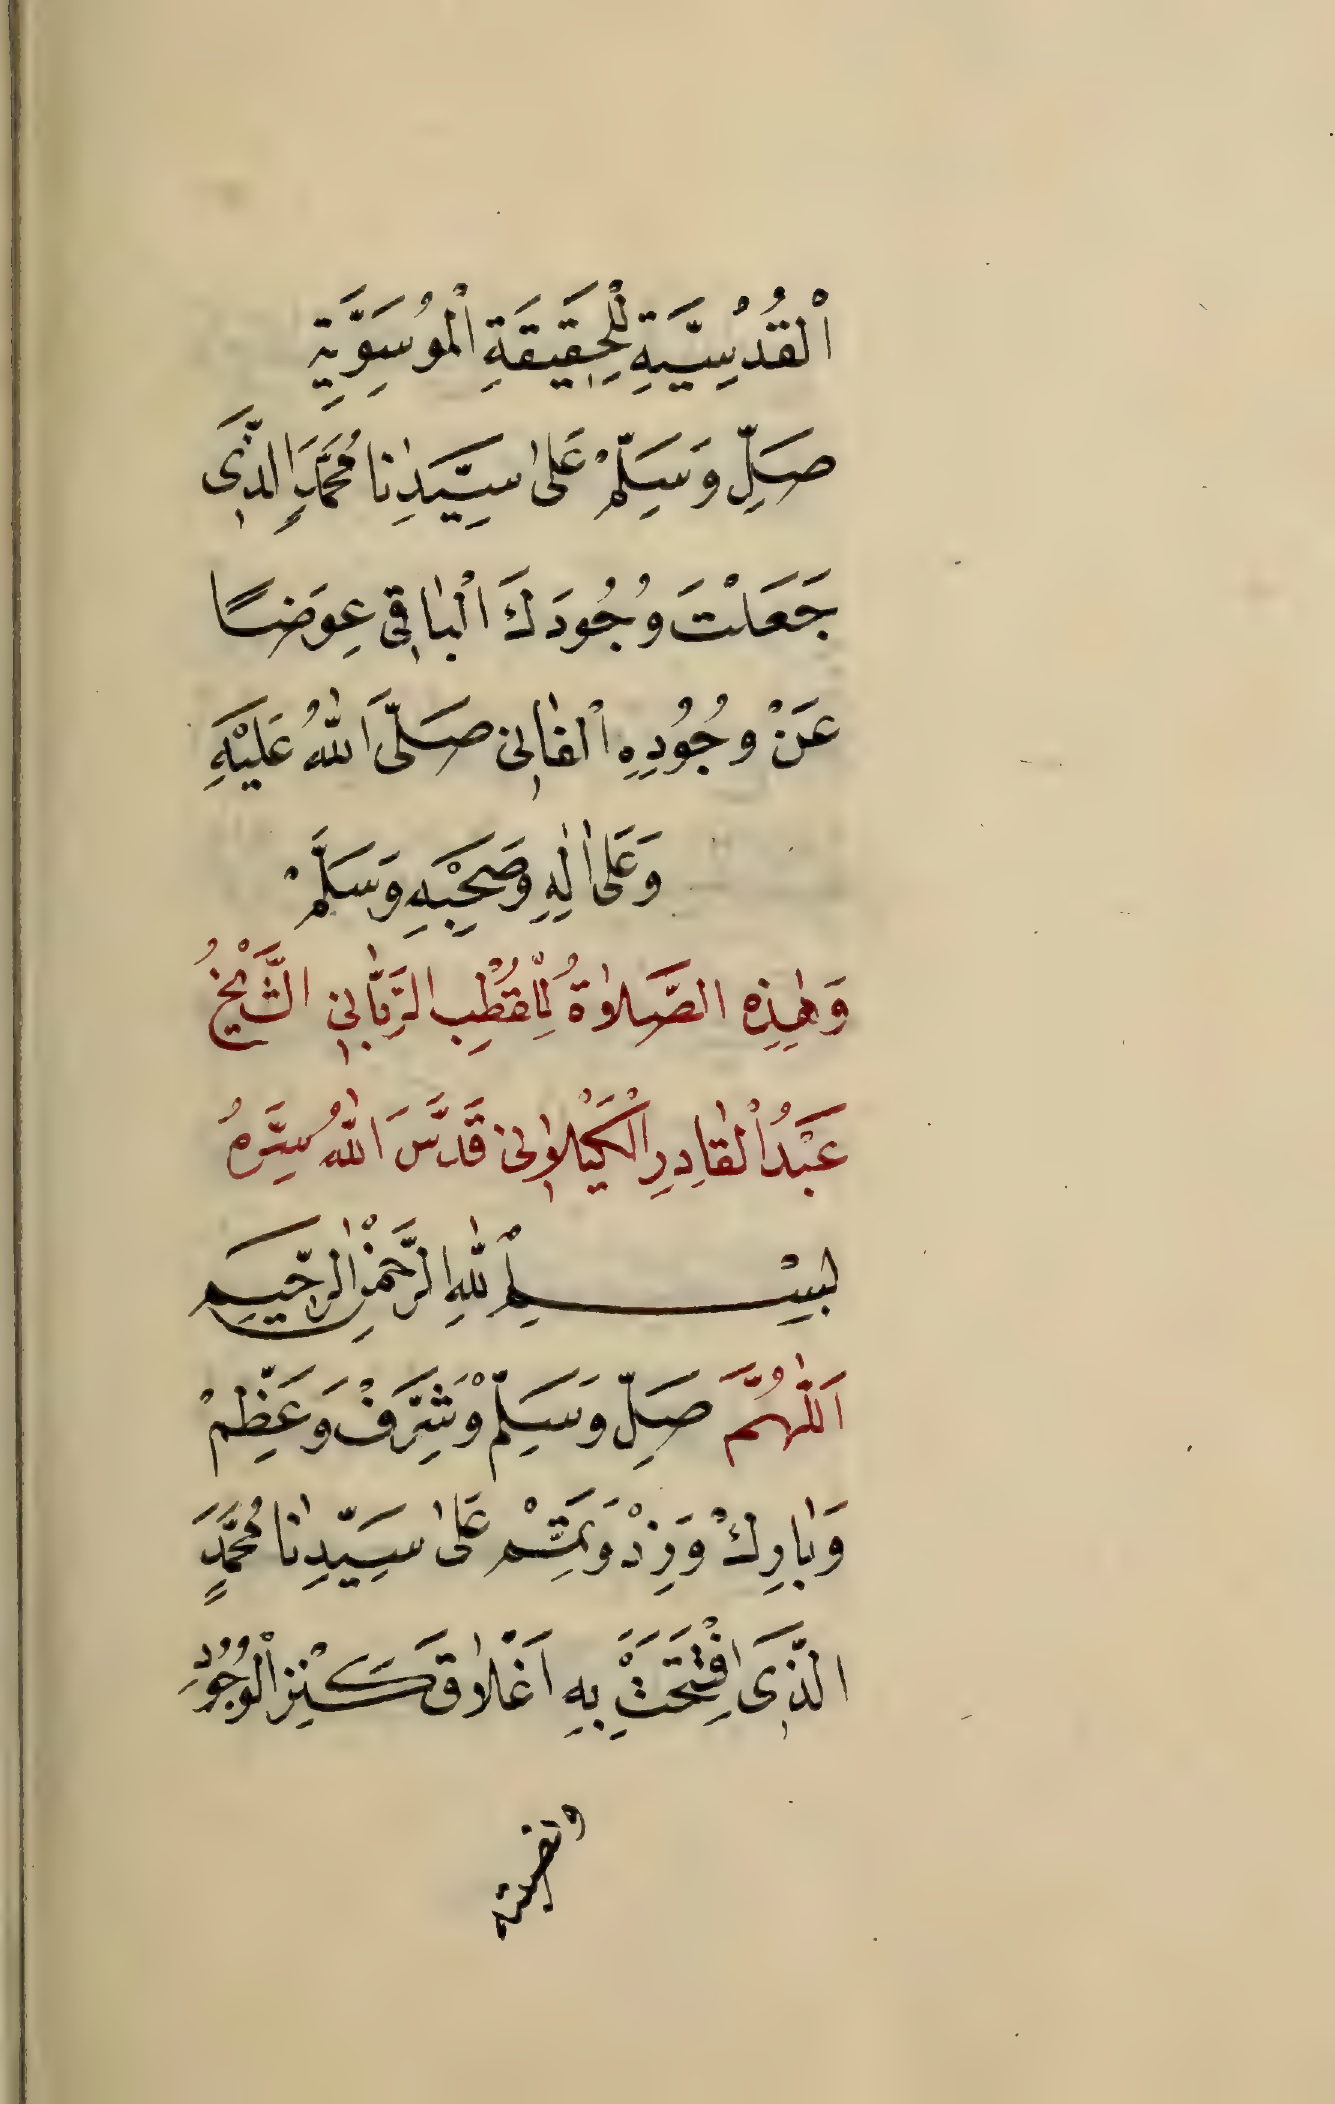 اَلْقُدُسِيَّةِ لِلْحَقِيقَةِ الْمُوسَوِيَّةِ
صَلِّ وَسَلِّمْ عَلٰى سَيِّدِنَا مُحَمَّدٍ الَّذِى
جَعَلْتَ وُجُودَكَ الْبَاقِى عِوَضًا
عَنْ وُجُودِهِ الْفَانِى صَلَّى اللّٰهُ عَلَيْهِ
وَعَلٰى اٰلِهِ وَصَحْبِهِ وَسَلَّمْ
وَهٰذِهِ الصَّلٰوةُ لِلْقُطْبِ الرَّبَّانِى الشَّيْخُ
عَبْدُ الْقَادِرِ الْكَيْلَانِى قَدَّسَ اللّٰهُ سِرَّهُ
بِسْمِ اللّٰهِ الرَّحْمٰنِ الرَّحِيمِ
اَللّٰهُمَّ صَلِّ وَسَلِّمْ وَشَرِّفْ وَعَظِّمْ
وَبَارِكْ وَزِدْ وَتَمِّمْ عَلٰى سَيِّدِنَا مُحَمَّدٍ
الَّذِى افْتَتَحْتَ بِهِ اَغْلَاقَ كَنْزِ الْوُجُودِ